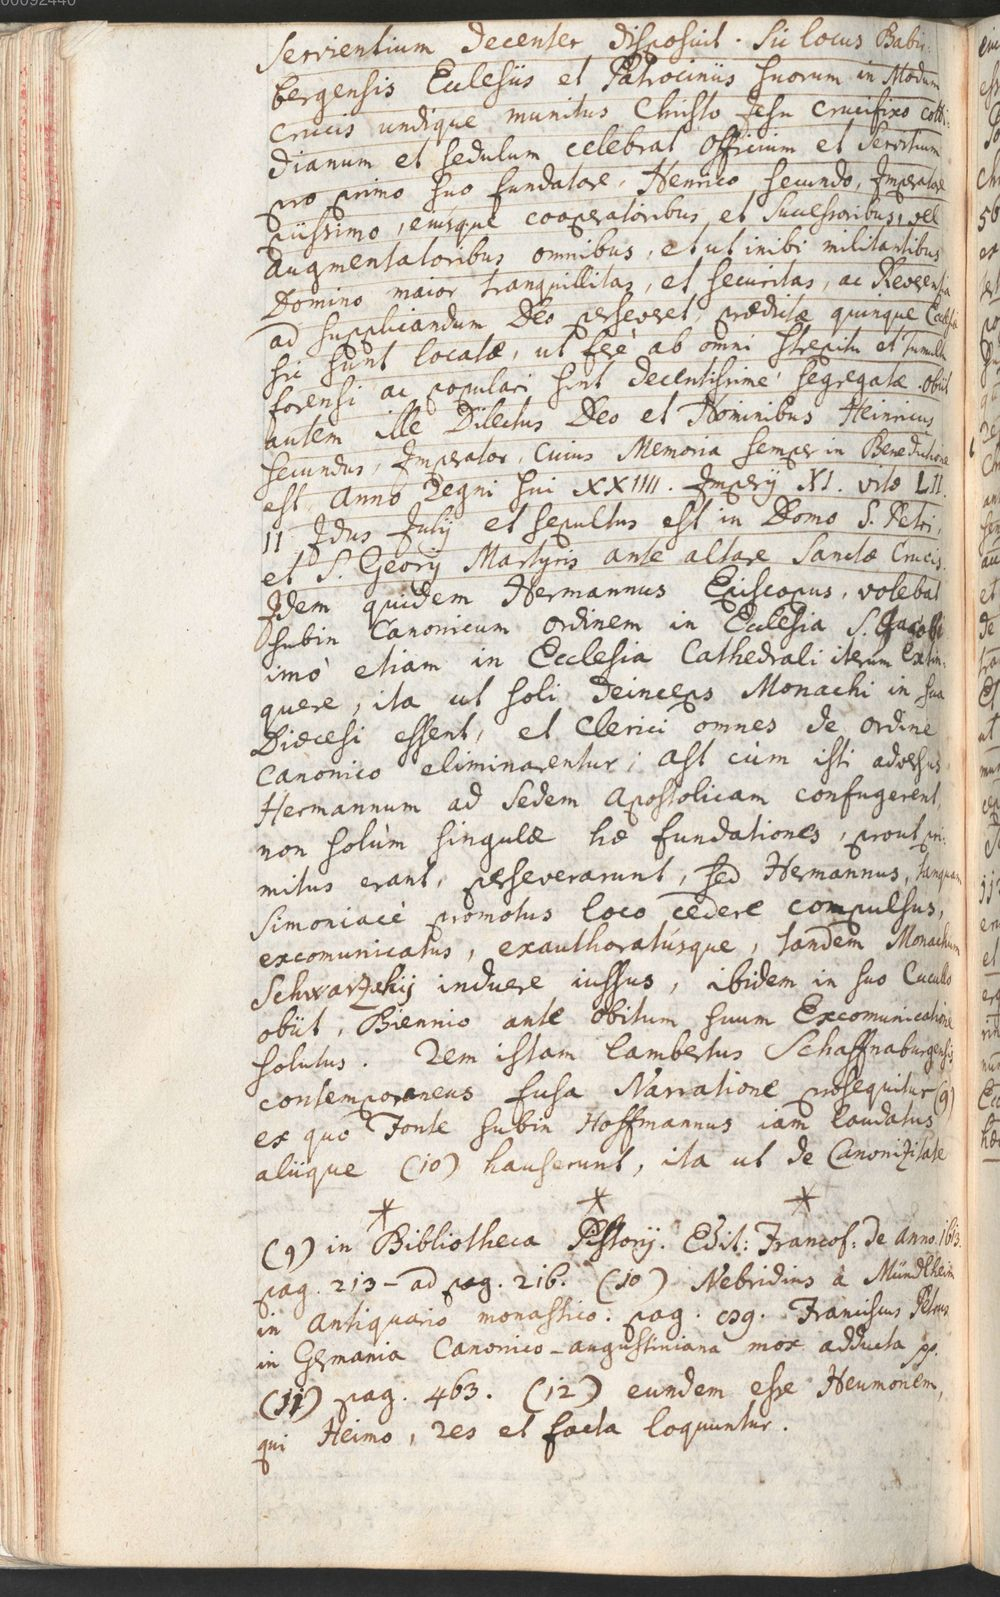 00092440
servientium decenter disposuit. Sic locus Babin-
bergensis Ecclesiis et Patrociniis suorum in Modum
Crucis undique munitus Christo Jesu crucifixo cotti-
dianum et sedulum celebrat Officium et Servitium
pro primo suo fundatore, Henrico secundo, Imperatore
piissimo, eiusque cooperatoribus et Successoribus, vel
augmentatoribus omnibus, et ut inibi militantibus
Domino maior tranquillitas, et securitas, ac Reverentia
ad supplicandum Deo perseveret, praedictae quinque Ecclesiae
sic sunt locatae, ut ferè ab omni strepitu et tumultu
forensi ac populari sint decentissimè segregatae. Obiit
autem ille Dilectus Deo et Hominibus Heinricus
secundus, Imperator, Cuius Memoria semper in Benedictione
est Anno Regni sui XXIIII. Imperij XI. vitae LII.
II Idus Julij et sepultus est in Domo S. Petri,
et S. Georij Martyris ante altare Sanctae Crucis.
Idem quidem Hermannus Episcopus, volebat
subin Canonicum ordinem in Ecclesia S. Jacobi
imò etiam in Ecclesia Cathedrali iterum Extin-
quere, ita ut soli deinceps Monachi in sua
Dioecesi essent, et Clerici omnes de ordine
Canonico eliminarentur; ast cùm isti adversus
Hermannum ad Sedem Apostolicam confugerent,
non solùm singulae hae fundationes, prout pri-
mitus erant, perseverarunt, sed Hermannus, tanquam
Simoniacè promotus loco cedere compulsus,
excomunicatus, exauthoratúsque, tandem Monachum
Schwarzakij induere iussus, ibidem in suo Cucullo
obiit, Biennio ante obitum suum Excomunicatione
solutus. Rem istam Lambertus Schaffnaburgensis
contemporaneus fusa Narratione prosequitur (9)
ex quo Fonte subin Hoffmannus iam laudatus
aliique (10) hauserunt, ita ut de Canonizitate
* * *
(9) in Bibliotheca Pistorij. Edit: Francof: de Anno. 1613.
pag. 213 - ad pag. 216. (10) Nebridius à Mündlheim
in Antiquario monastico. pag. 139. Franciscus Petrus
in Germania Canonico-augustiniana mox adducta pp.
(11) pag. 463. (12) eundem esse Heumonem,
qui Heimo, res et facta loquuntur.